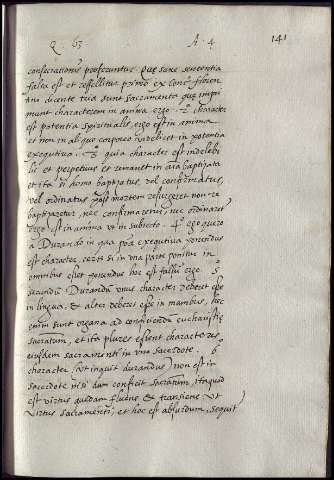 Q. 63 A. 4 141
consecrationis proferuntur. Que sane sententia
falsa est et refellitur primo ex conc. floren
tino dicente tria sunt sacramenta que impri
munt characterem in anima ergo. 2º character
est potentia spiritualis, ergo est in anima
et non in aliquo corporeo videlicet in potentia
exequtiva. 3º quia character est indelebi
lis et perpetuus et remanet in anima baptizata
et ita si homo baptizatus, vel confirmatus,
vel ordinatus post mortem resurgeret non re
baptizaretur, nec confirmaretur, nec ordinaretur
ergo est in anima ut in subiecto. 4º ergo quero
a Durando in qua potentia exequtiva ponendus
est character, certe si in una parte ponitur in
omnibus esset ponendus hoc est falsum ergo. 5º
secundum Durandum unus character deberet esse
in lingua, et alter deberet esse in manibus, hec
enim sunt organa ad conficiendum eucharistie
sacramentum, et ita plures essent characteres
eiusdem sacramenti in uno sacerdote. 6º
character (ut inquit durandus) non est in
sacerdote nisi dum conficit sacramentum, itaquod
est virtus quedam fluens et transiens ut
virtus sacramenti, et hoc est absurdum, sequit